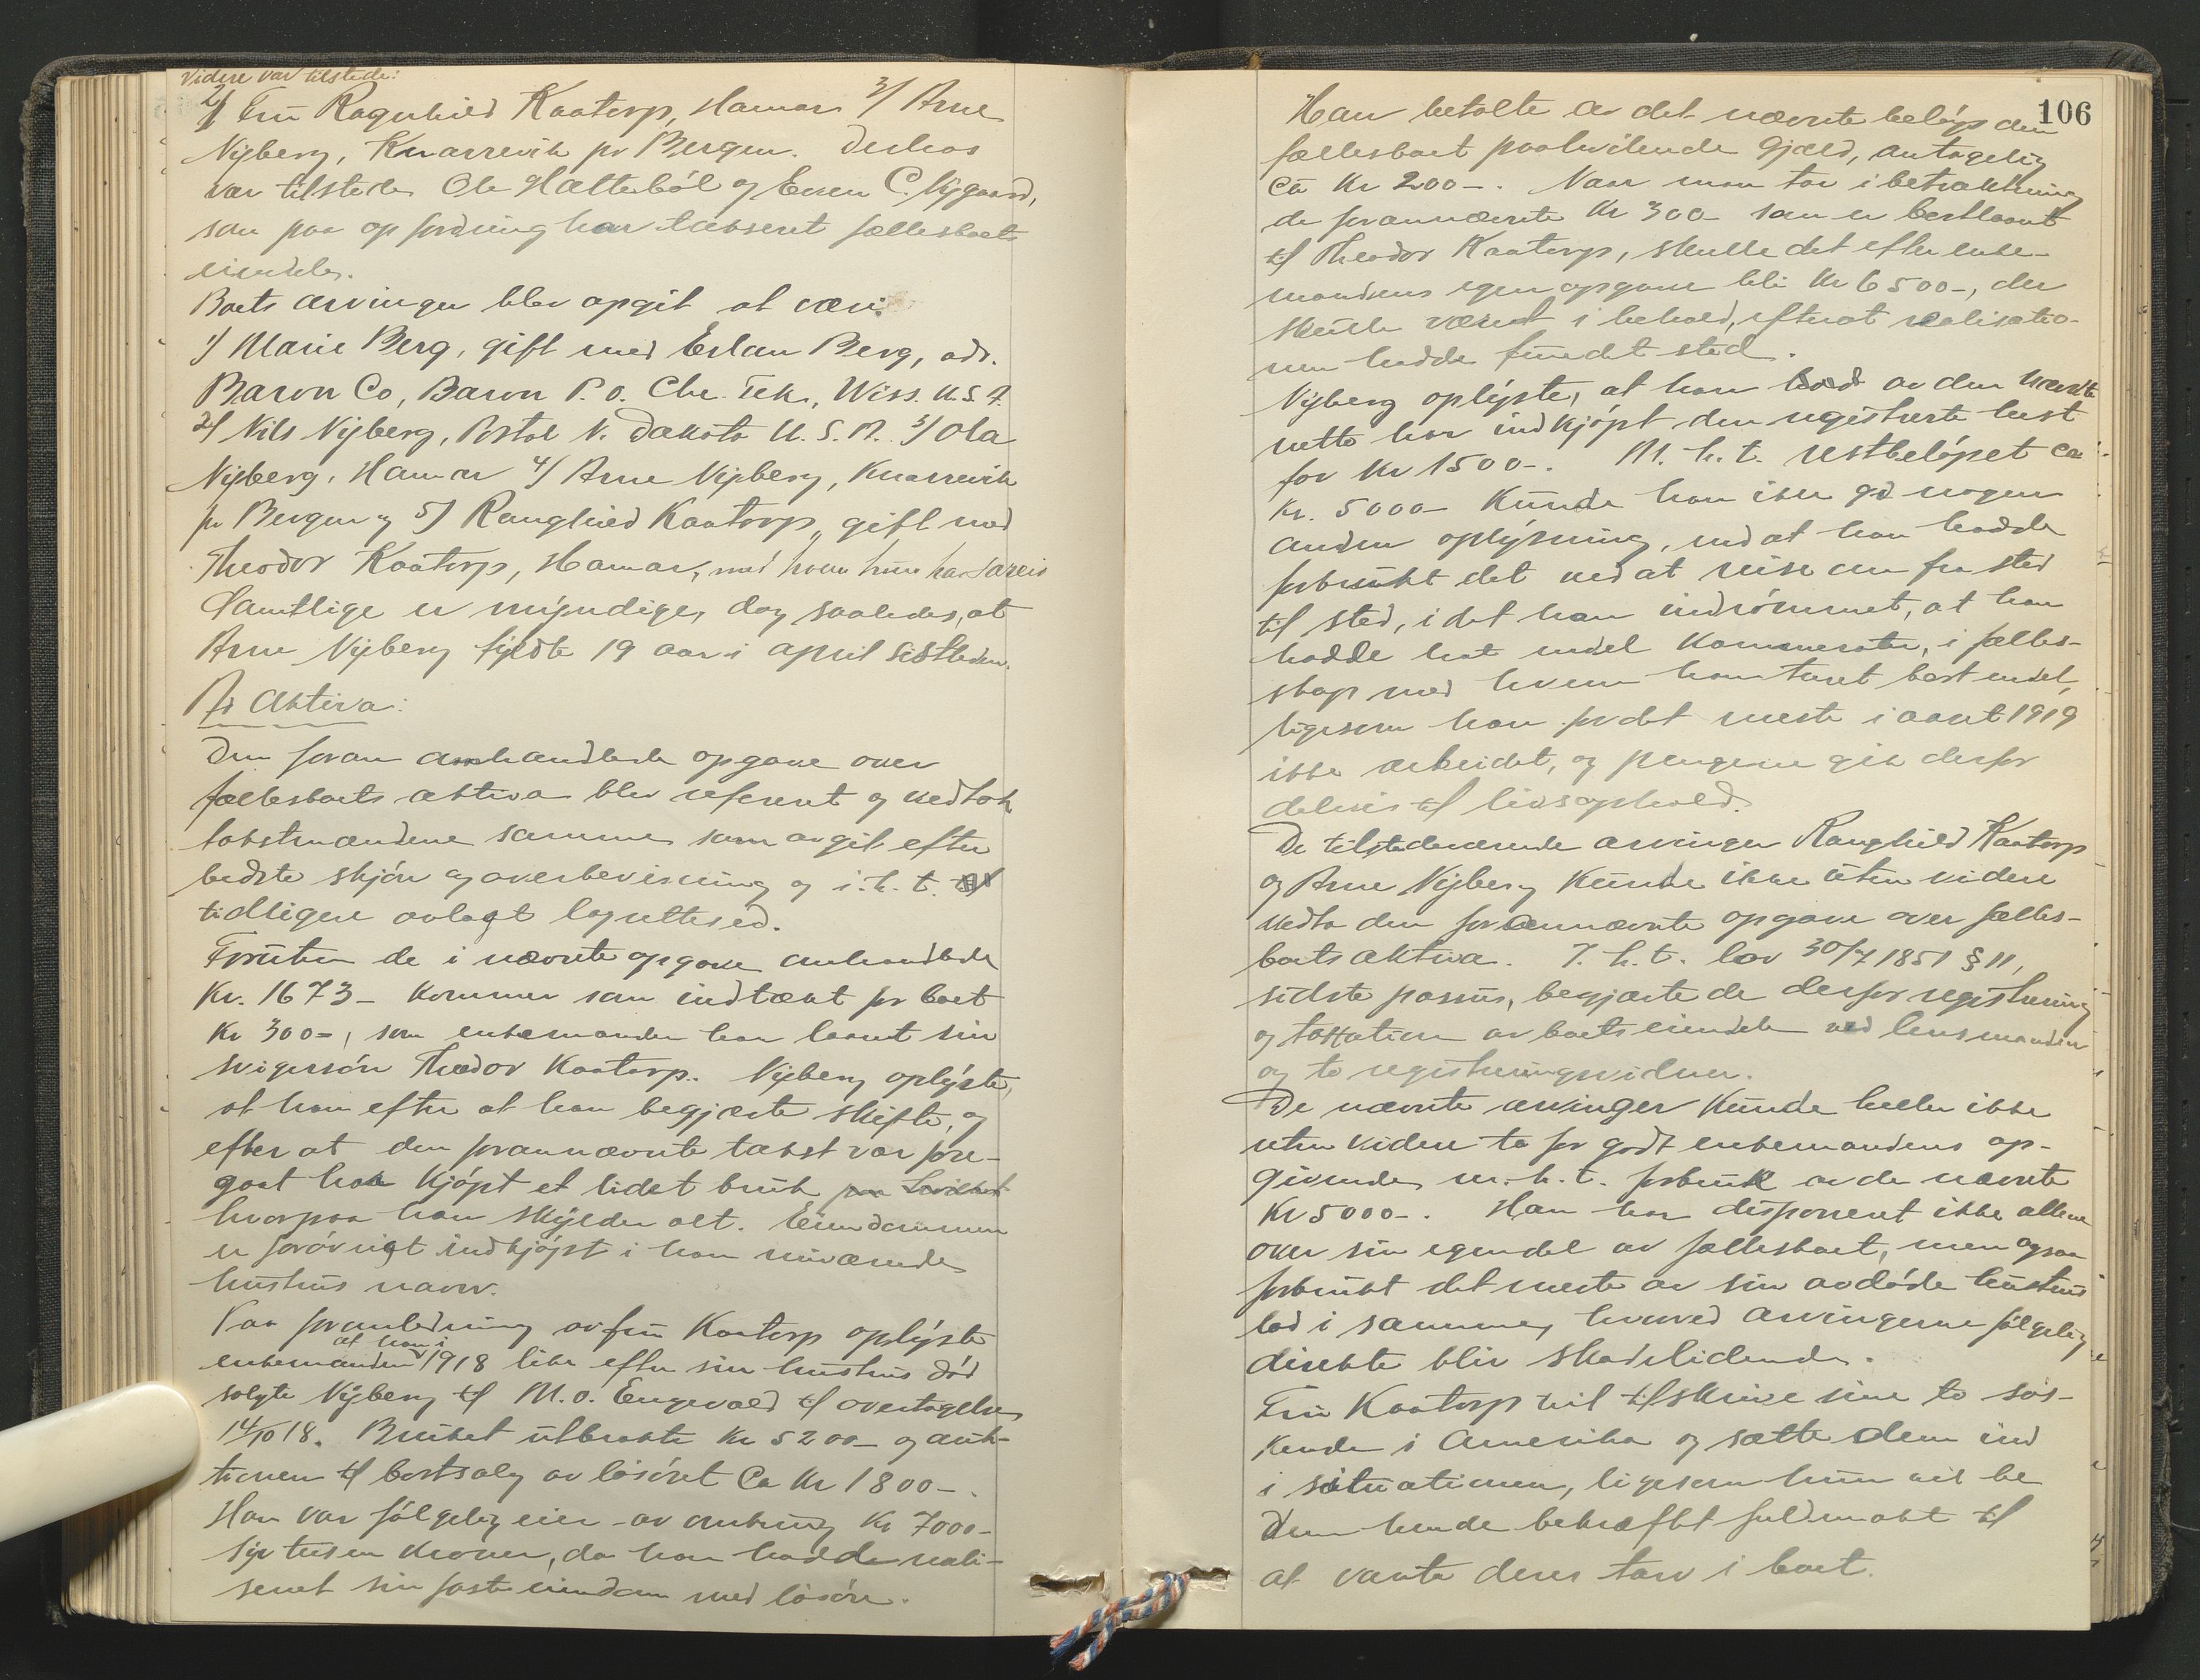 Videre var tilstede:
2/ Fru Ragnhild Kaatorp, Hamar 3/ Arne
Nyberg, Knarrevik pr Bergen. Derhos
var tilstede Ole Hatterböl og Even C. Nygaard,
som paa opfordring har taksert fællesboets
eiendele.
Boets arvinger blev opgit at være:
1/ Marie Berg, gift med Erlan Berg, adr.
Baron Co, Baron P.O. Chr. Tek, Wiss. U.S.A.
2/ Nils Nyberg, Portal N. Dakota U.S.A. 3/ Ola
Nyberg, Hamar 4/ Arne Nyberg, Knarrevik
pr Bergen og 5/ Ranghild Kaatorp, gift med
Theodor Kaatorp, Hamar, med hvem hun har særeie
Samtlige er myndige, dog saaledes, at
Arne Nyberg fyldte 19 aar i april sistleden.
Ad Aktiva:
Den foran omhandlede opgave over
fællesboets aktiva blev referert og vedtok
takstmændene samme som avgit efter
bedste skjön og overbevisning og i.h.t.
tidligere avlagt lagrettesed.
Foruten de i nævnte opgave omhandlede
Kr. 1673- kommer som indtækt for boet
Kr 300-, som enkemanden har laant sin
svigersön Theodor Kaatorp. Nyberg oplyste,
at han efter at han begjærte skifte, og
efter at den forannævnte takst var fore-
gaat har kjöpt et lidet bruk
hvorpaa han skylder alt. Eiendommen
er forövrigt indkjöpt i han nuværende
hustrus navn.
Paa foranledning av fru Kaatorp oplyste
enkemanden at han i 1918 like efter sin hustrus död
solgte Nyberg til M.O. Engevold til overtagelse
14/10 18. Bruket utbrakte Kr 5200- og auk-
tionen til bortsalg av lösöret Ca Kr 1800-.
Han var fölgelig eier av omkring Kr 7000-
syv tusen kroner, da han hadde reali-
sert sin faste eiendom med lösöre.
106
Han betalte av det nævnte belöp den
fællesboet paahvilende gjæld, antagelig
Ca Kr 200-. Naar man tar i betraktning
de forannævnte Kr 300 som er bortlaant
til Theodor Kaatorp, skulle det efter enke-
mandens egen opgave bli Kr 6500-, der
skulle været i behold, efterat realisatio-
nen hadde fundet sted.
Nyberg oplyste, at han av den nævnte
netto har indkjöpt den registrerte hest
for Kr 1500-. M.h.t. restbelöpet ca
Kr. 5000 kunde han ikke gi nogen
anden oplysning, end at han hadde
forbrukt det ved at reise om fra sted
til sted, i det han indrömmet, at han
hadde hat endel kammerater, i fælles-
skap med hvem han turet bort endel,
ligesom han for det meste i aaret 1919
ikke arbeidet, og pengene gik derfor
delvis til livsophold.
De tilstedeværende arvinger Ranghild Kaatorp
og Arne Nyberg kunde ikke uten videre
vedta den forannævnte opgave over fælles-
boets aktiva. I.h.t. lov 30/7 1851 § 11,
sidste passus, begjærte de derfor registrering
og taxation av boets eiendele ved lensmanden
og to registreringsvidner.
De nævnte arvinger kunde heller ikke
uten videre ta for godt enkemandens op-
givende m.h.t. forbruk av de nævnte
Kr 5000-. Han har disponert ikke allene
over sin egendel av fællesboet, men ogsaa
forbrukt det meste av sin avdöde hustrus
lod i samme, hvorved arvingerne fölgelig
direkte blir skadelidende.
Fru Kaatorp vil tilskrive sine to sös-
kende i Amerika og sætte dem ind
i situationen, ligesom hun vil be
dem sende bekræftet fuldmakt til
at vareta deres tarv i boet.